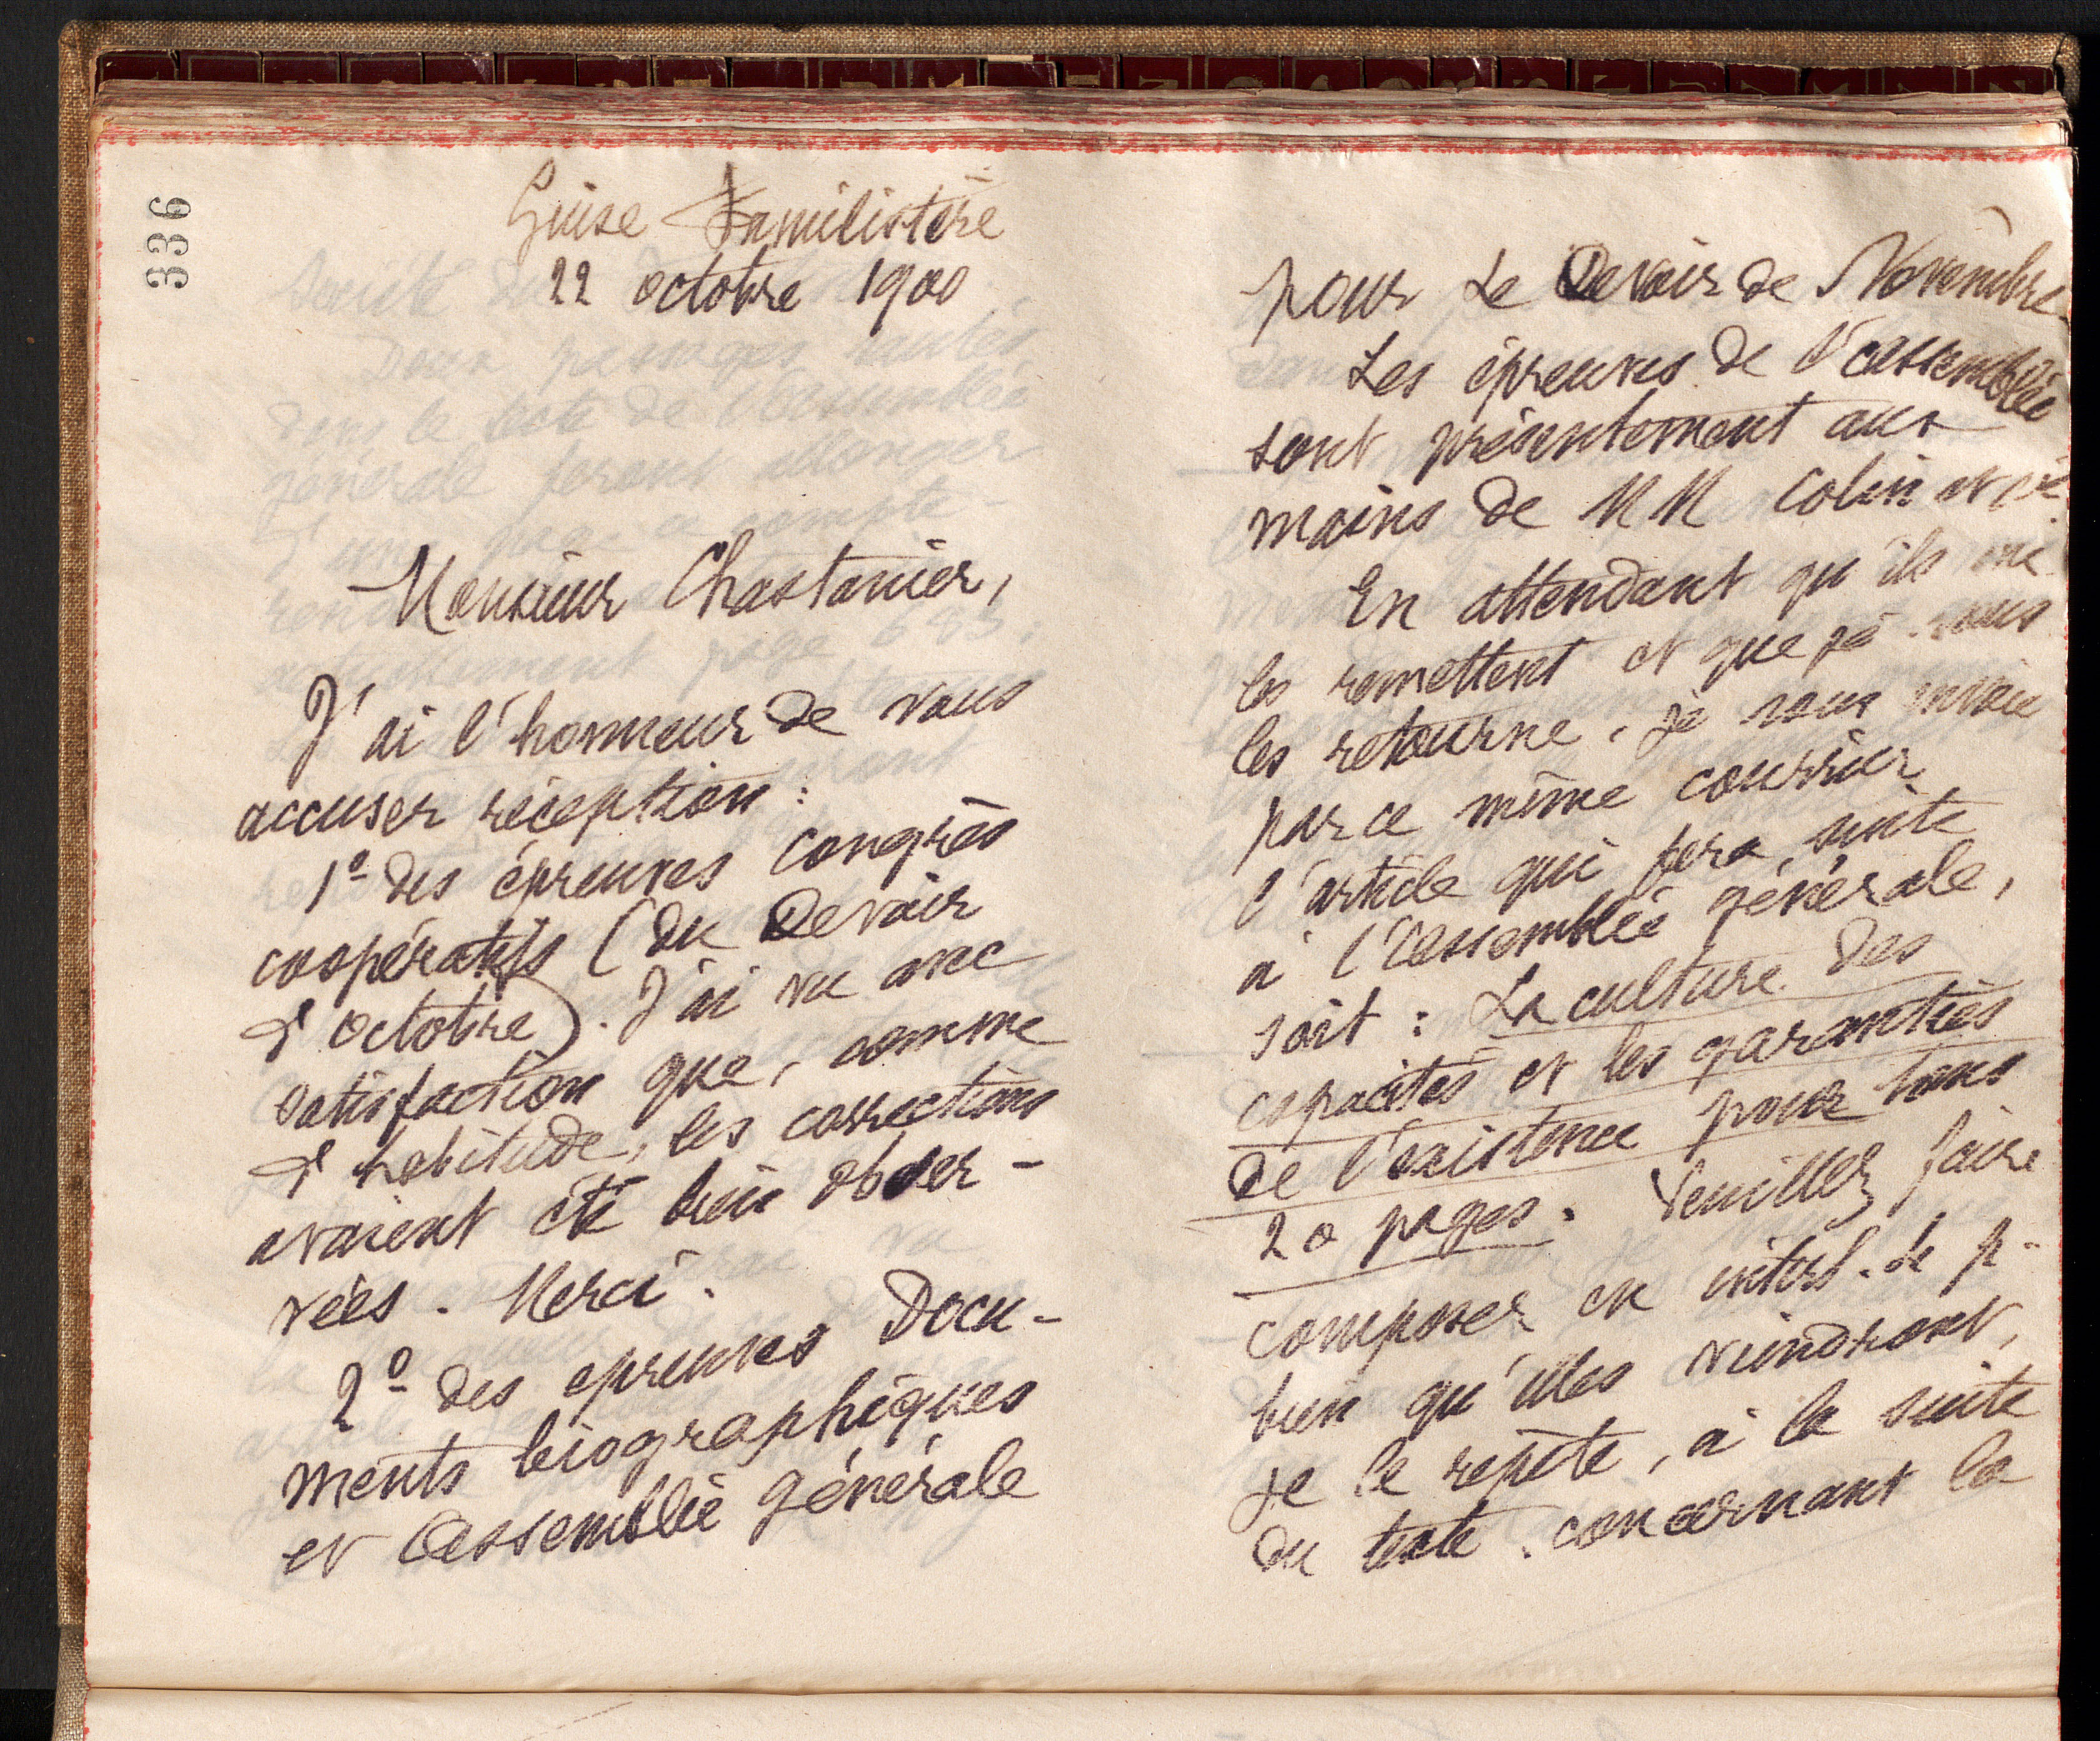 336
Guise Familistère
22 octobre 1900
Monsieur Chastanier,
J'ai l'honneur de vous
accuser réception :
1º des épreuves Congrès
coopératifs (du Devoir
d'octobre). J'ai vu avec
satisfaction que, comme
d'habitude, les corrections
avaient été bien obser-
vées. Merci.
2º des epreuves Docu-
ments biographiques
et Assemblée générale
pour Le Devoir de Novembre.
Les épreuves de l'assemblée
sont présentement aux
mains de MM Colin et
En attendant qu'ils me
les remettent et que je vous
les retourne, je vous envoie
par ce même courrier
l'article qui fera suite
à l'assemblée générale,
soit : La culture des
capacités et les garanties
de l'existence pour tous
20 pages. Veuillez faire
composer en interl. de p.
bien qu'elles viendront,
je le répète, à la suite
du texte concernant la